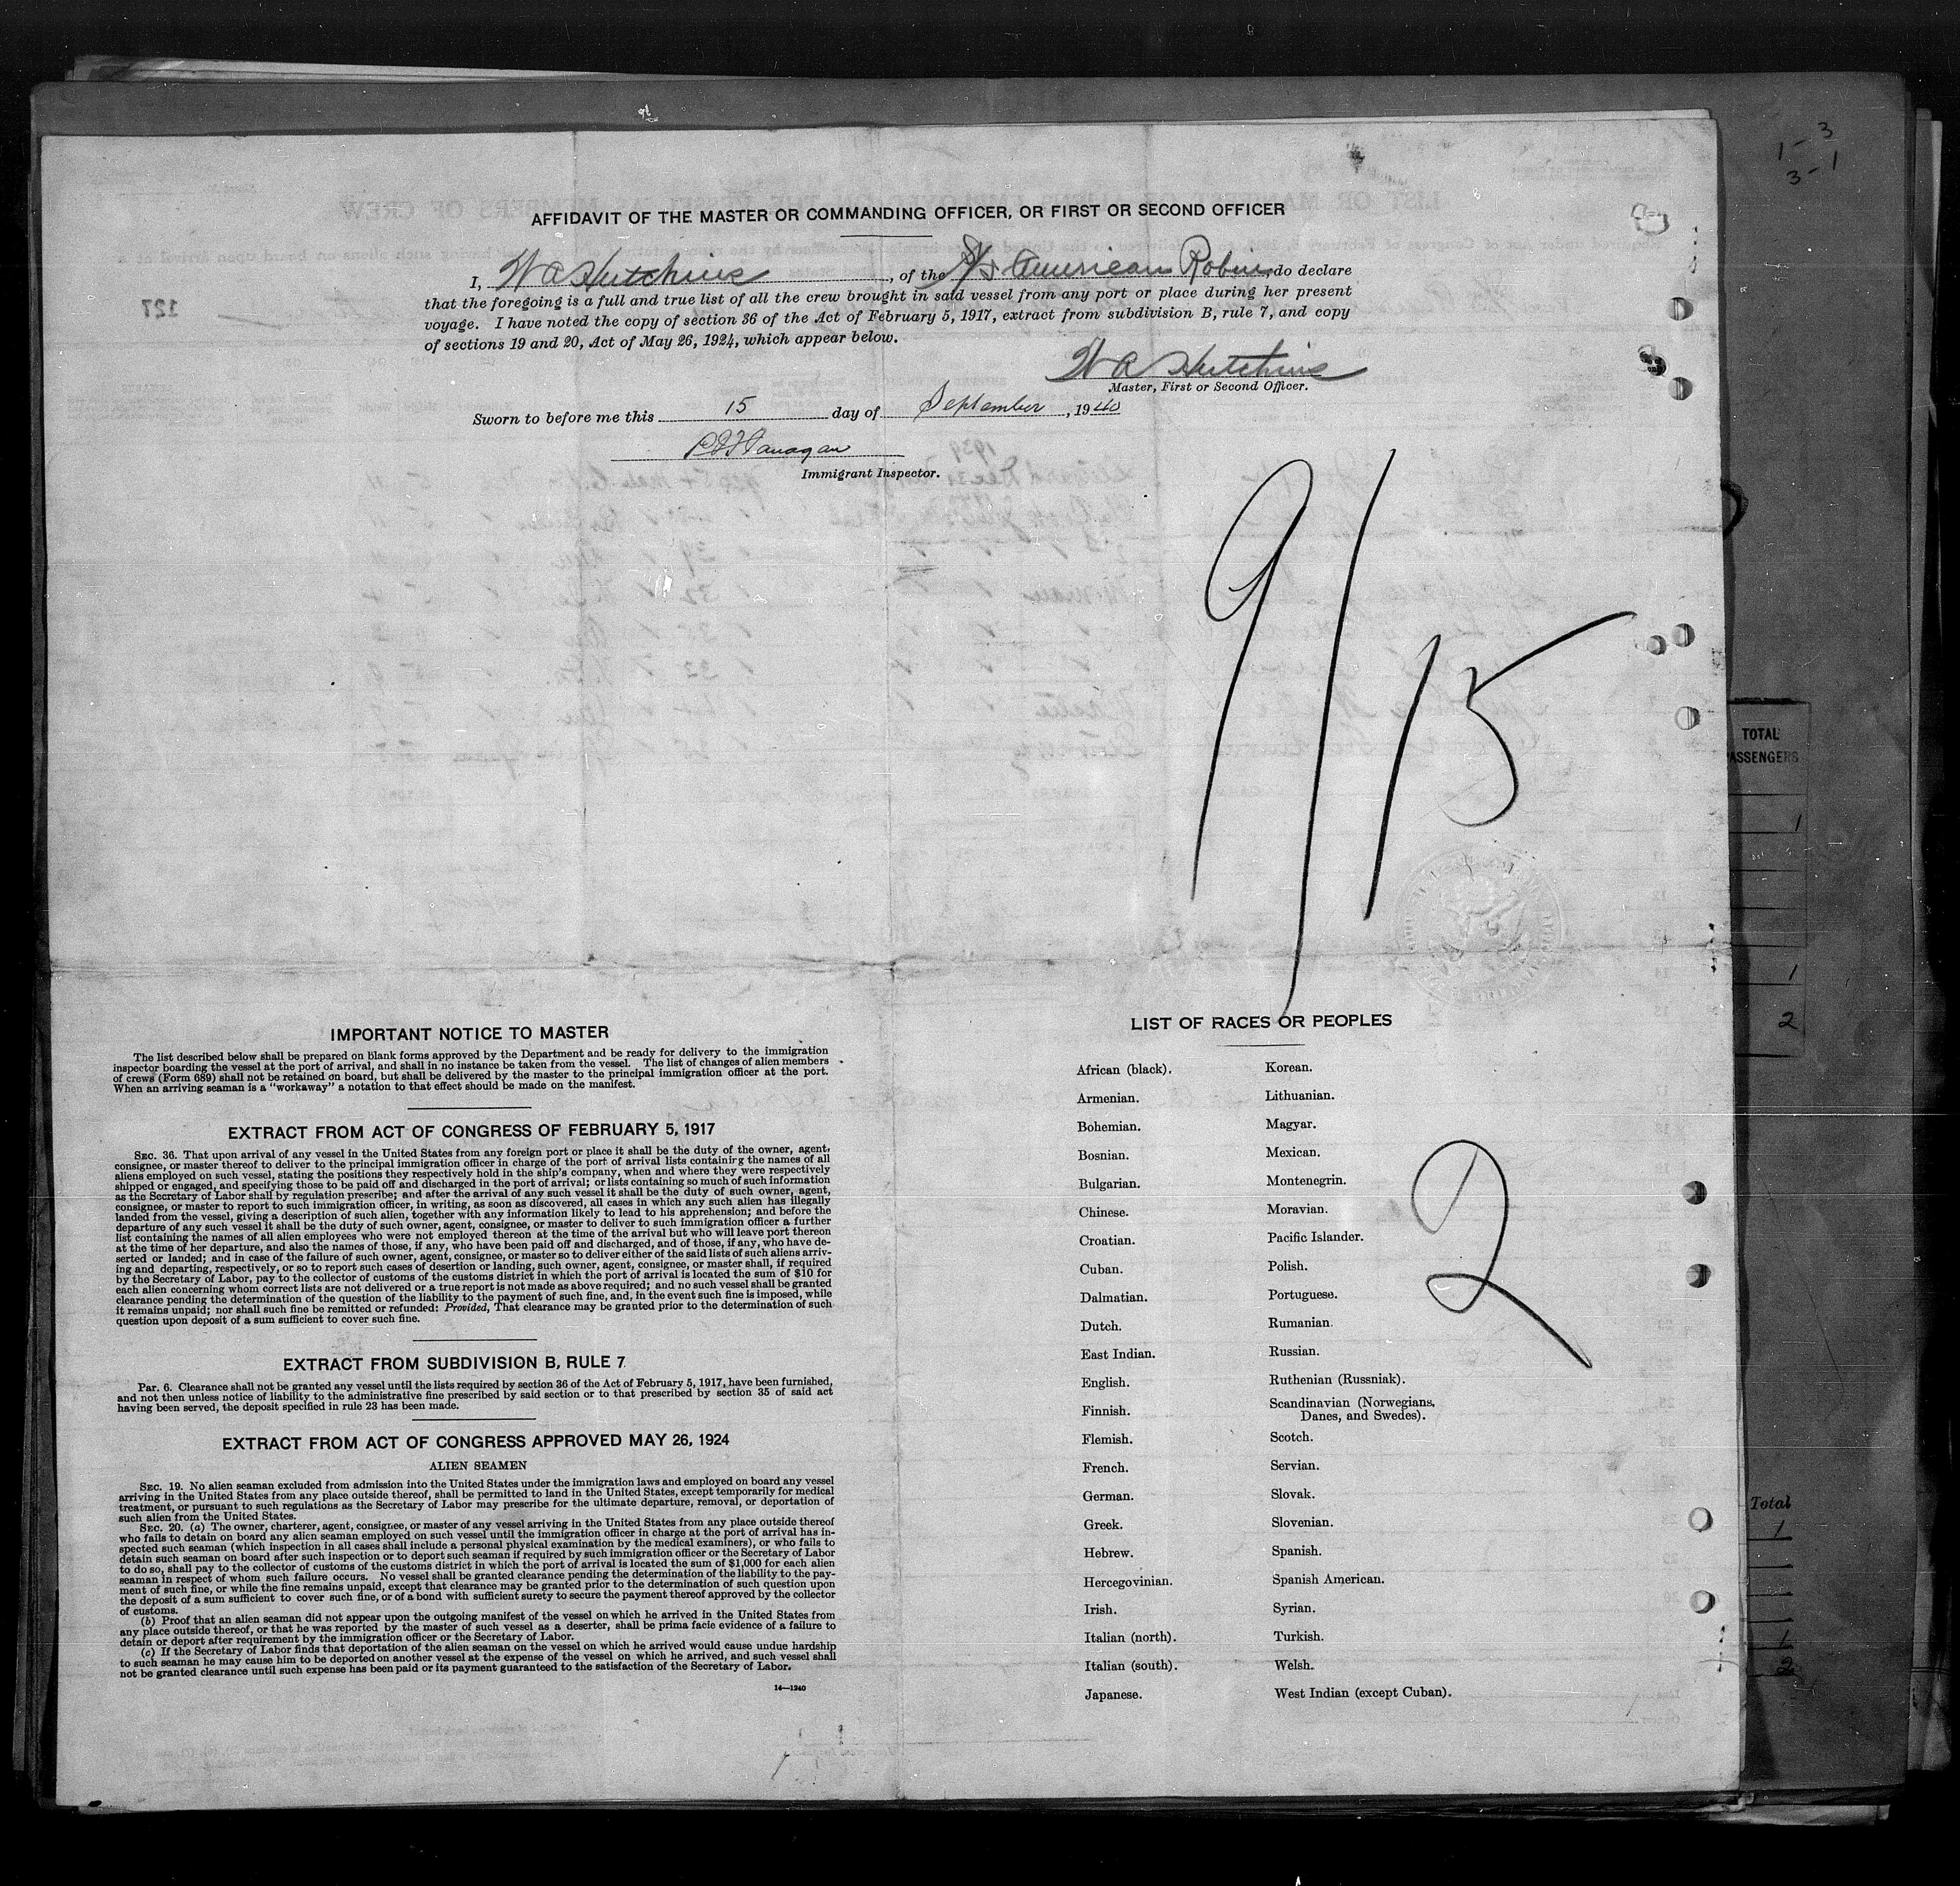 AFFIDAVIT OF THE MASTER OR COMMANDING OFFICER, OR FIRST OR SECOND OFFICER
I, W A Hutchins, of the S/S American Robin, do declare
that the foregoing is a full and true list of all the crew brought in said vessel from any port or place during her present
voyage. I have noted the copy of section 36 of the Act of February 5, 1917, extract from subdivision B, rule 7, and copy
of sections 19 and 20, Act of May 26, 1924, which appear below.
W A Hutchins
Master, First or Second Officer.
Sworn to before me this 15 day of September, 1940
Flanagan
Immigrant Inspector.
9/15
127
1-3
3-1
TOTAL
PASSENGERS
1
1
2
IMPORTANT NOTICE TO MASTER
The list described below shall be prepared on blank forms approved by the Department and be ready for delivery to the immigration
inspector boarding the vessel at the port of arrival, and shall in no instance be taken from the vessel. The list of changes of alien members
of crews (Form 689) shall not be retained on board, but shall be delivered by the master to the principal immigration officer at the port.
When an arriving seaman is a "workaway" a notation to that effect should be made on the manifest.
EXTRACT FROM ACT OF CONGRESS OF FEBRUARY 5, 1917
SEC. 36. That upon arrival of any vessel in the United States from any foreign port or place it shall be the duty of the owner, agent,
consignee, or master thereof to deliver to the principal immigration officer in charge of the port of arrival lists containing the names of all
aliens employed on such vessel, stating the positions they respectively hold in the ship's company, when and where they were respectively
shipped or engaged, and specifying those to be paid off and discharged in the port of arrival; or lists containing so much of such information
as the Secretary of Labor shall by regulation prescribe; and after the arrival of any such vessel it shall be the duty of such owner, agent,
consignee, or master to report to such immigration officer, in writing, as soon as discovered, all cases in which any such alien has illegally
landed from the vessel, giving a description of such alien, together with any information likely to lead to his apprehension; and before the
departure of any such vessel it shall be the duty of such owner, agent, consignee, or master to deliver to such immigration officer a further
list containing the names of all alien employees who were not employed thereon at the time of the arrival but who will leave port thereon
at the time of her departure, and also the names of those, if any, who have been paid off and discharged, and of those, if any, who have de-
serted or landed; and in case of the failure of such owner, agent, consignee, or master so to deliver either of the said lists of such aliens arriv-
ing and departing, respectively, or so to report such cases of desertion or landing, such owner, agent, consignee, or master shall, if required
by the Secretary of Labor, pay to the collector of customs of the customs district in which the port of arrival is located the sum of $10 for
each alien concerning whom correct lists are not delivered or a true report is not made as above required; and no such vessel shall be granted
clearance pending the determination of the question of the liability to the payment of such fine, and, in the event such fine is imposed, while
it remains unpaid; nor shall such fine be remitted or refunded: Provided, That clearance may be granted prior to the determination of such
question upon deposit of a sum sufficient to cover such fine.
EXTRACT FROM SUBDIVISION B, RULE 7
PAR. 6. Clearance shall not be granted any vessel until the lists required by section 36 of the Act of February 5, 1917, have been furnished,
and not then unless notice of liability to the administrative fine prescribed by said section or to that prescribed by section 35 of said act
having been served, the deposit specified in rule 23 has been made.
EXTRACT FROM ACT OF CONGRESS APPROVED MAY 26, 1924
ALIEN SEAMEN
SEC. 19. No alien seaman excluded from admission into the United States under the immigration laws and employed on board any vessel
arriving in the United States from any place outside thereof, shall be permitted to land in the United States, except temporarily for medical
treatment, or pursuant to such regulations as the Secretary of Labor may prescribe for the ultimate departure, removal, or deportation of
such alien from the United States.
SEC. 20. (a) The owner, charterer, agent, consignee, or master of any vessel arriving in the United States from any place outside thereof
who fails to detain on board any alien seaman employed on such vessel until the immigration officer in charge at the port of arrival has in-
spected such seaman (which inspection in all cases shall include a personal physical examination by the medical examiners), or who fails to
detain such seaman on board after such inspection or to deport such seaman if required by such immigration officer or the Secretary of Labor
to do so, shall pay to the collector of customs of the customs district in which the port of arrival is located the sum of $1,000 for each alien
seaman in respect of whom such failure occurs. No vessel shall be granted clearance pending the determination of the liability to the pay-
ment of such fine, or while the fine remains unpaid, except that clearance may be granted prior to the determination of such question upon
the deposit of a sum sufficient to cover such fine, or of a bond with sufficient surety to secure the payment thereof approved by the collector
of customs.
(b) Proof that an alien seaman did not appear upon the outgoing manifest of the vessel on which he arrived in the United States from
any place outside thereof, or that he was reported by the master of such vessel as a deserter, shall be prima facie evidence of a failure to
detain or deport after requirement by the immigration officer or the Secretary of Labor.
(c) If the Secretary of Labor finds that deportation of the alien seaman on the vessel on which he arrived would cause undue hardship
to such seaman he may cause him to be deported on another vessel at the expense of the vessel on which he arrived, and such vessel shall
not be granted clearance until such expense has been paid or its payment guaranteed to the satisfaction of the Secretary of Labor.
14—1240
LIST OF RACES OR PEOPLES
African (black).
Armenian.
Bohemian.
Bosnian.
Bulgarian.
Chinese.
Croatian.
Cuban.
Dalmatian.
Dutch.
East Indian.
English.
Finnish.
Flemish.
French.
German.
Greek.
Hebrew.
Hercegovinian.
Irish.
Italian (north).
Italian (south).
Japanese.
Korean.
Lithuanian.
Magyar.
Mexican.
Montenegrin.
Moravian.
Pacific Islander.
Polish.
Portuguese.
Rumanian.
Russian.
Ruthenian (Russniak).
Scandinavian (Norwegians,
Danes, and Swedes).
Scotch.
Servian.
Slovak.
Slovenian.
Spanish.
Spanish American.
Syrian.
Turkish.
Welsh.
West Indian (except Cuban).
2
Total
1
1
2